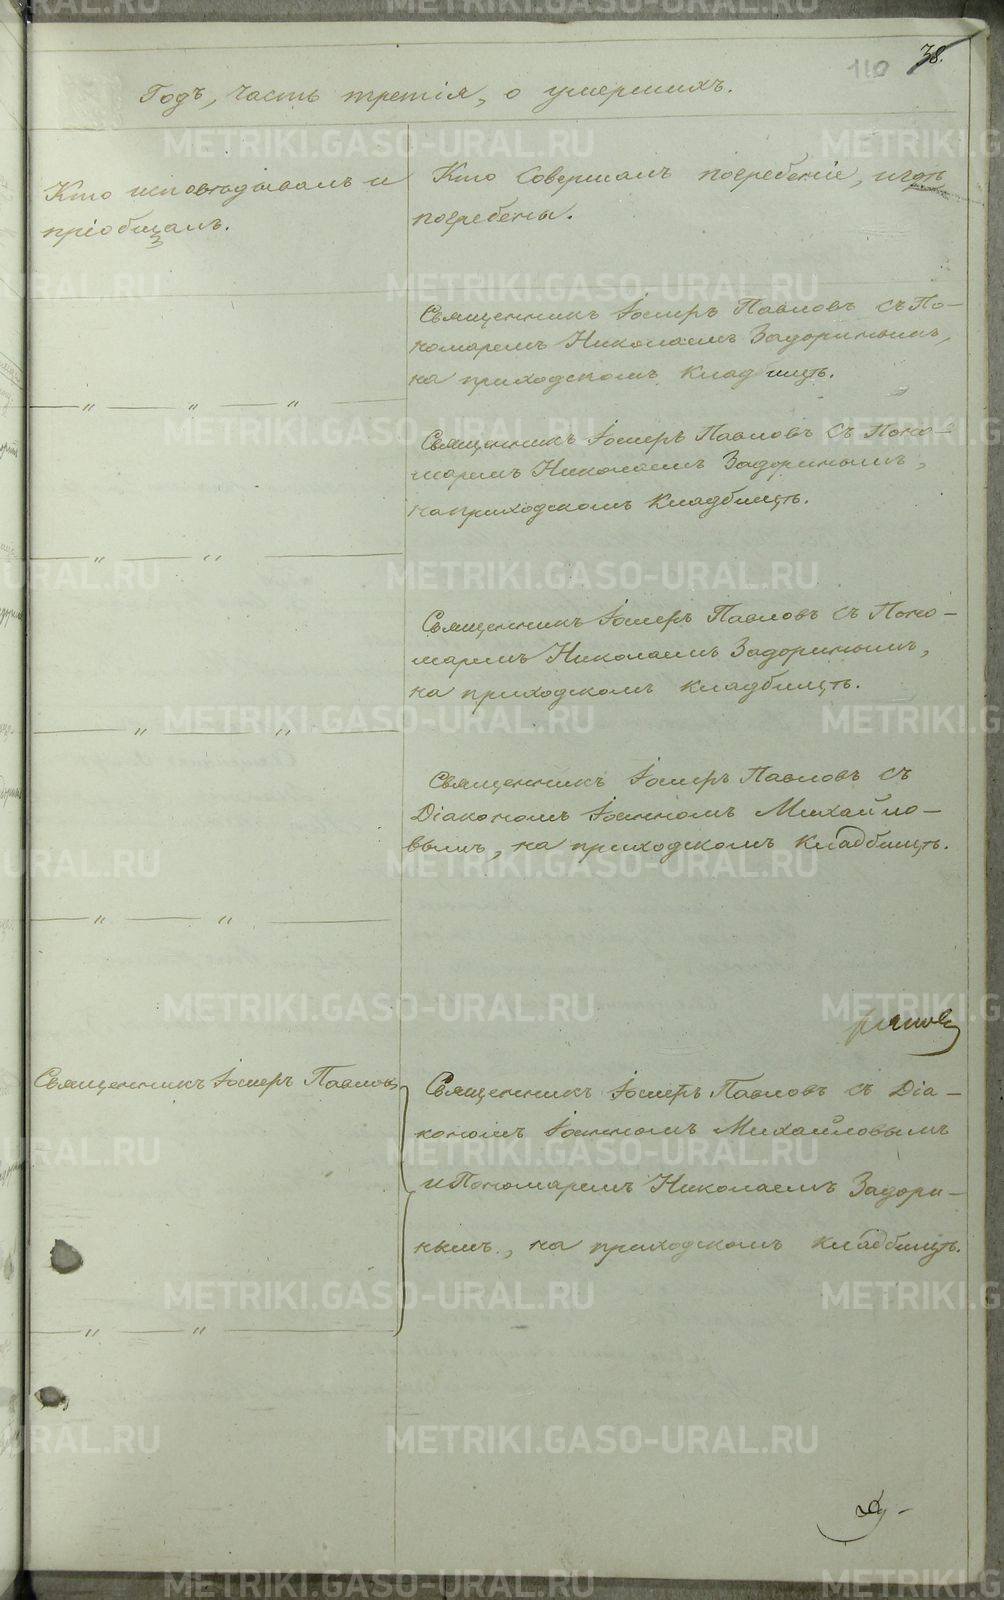 38.
110
Годъ, часть третія, о умершихъ.
Кто исповѣдывалъ и
пріобщалъ.
Кто Совершалъ погребеніе, и гдѣ
погребены.
Священникъ Іосифъ Павловъ съ По-
номаремъ Николаемъ Задоринымъ,
на приходскомъ Кладбищѣ.
— „ — „ — „ —
Священникъ Іосифъ Павловъ съ Поно-
маремъ Николаемъ Задоринымъ,
на приходскомъ Кладбищѣ.
— „ — „ —
Священникъ Іосифъ Павловъ съ Поно-
маремъ Николаемъ Задоринымъ,
на приходскомъ кладбищѣ.
— „ — „ —
Священникъ Іосифъ Павловъ съ
Діакономъ Іоанномъ Михайло-
вымъ, на приходскомъ Кладбищѣ.
— „ — „ —
Священникъ Іосифъ Павловъ
Священникъ Іосифъ Павловъ съ Діа-
кономъ Іоанномъ Михайловымъ
и Пономаремъ Николаемъ Задори-
нымъ, на приходскомъ кладбищѣ.
— „ — „ —
METRIKI.GASO-URAL.RU